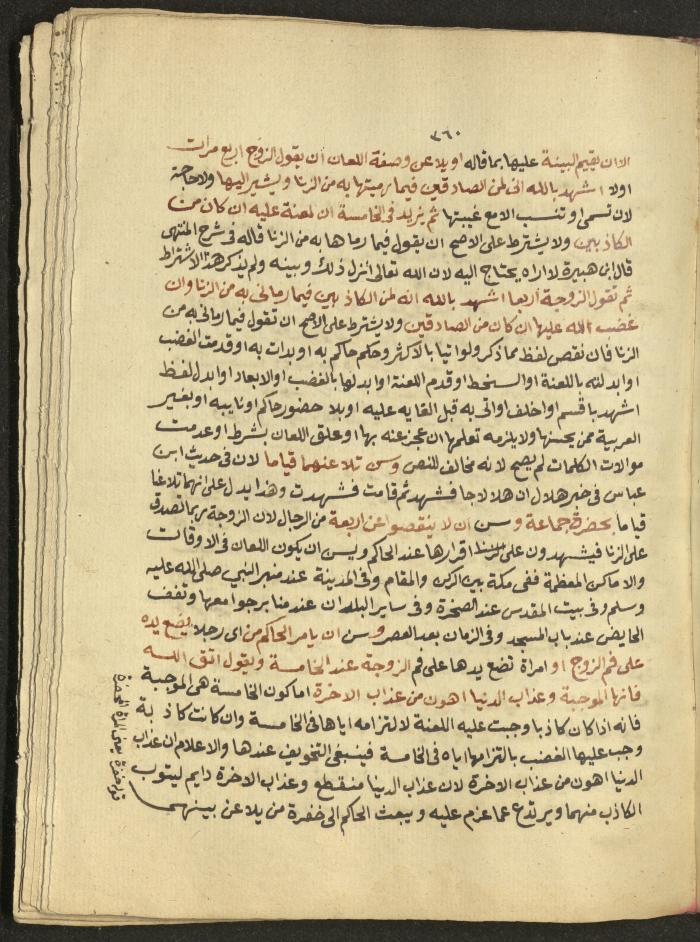 ٣٦٠
الا ان يقيم البينة عليها بما قاله او يلاعن وصفة اللعان ان يقول الزوج اربع مرات
اولا اشهد بالله اني لمن الصادقين فيما رميتها به من الزنا ويشير اليها ولا حاجة
لان تسمى او تنسب الا مع غيبتها ثم يزيد في الخامسة ان لعنة عليه ان كان من
الكاذبين ولا يشترط على الاصح ان يقول فيما رماها به من الزنا قاله في شرح المنتهى
قال ابن هبيرة لا اراه يحتاج اليه لان الله تعالى انزل ذلك وبينه ولم يذكر هذا الاشتراط
ثم تقول الزوجة اربعا اشهد بالله انه لمن الكاذبين فيما رماني به من الزنا وان
غضب الله عليها ان كان من الصادقين ولا يشترط على الاصح ان تقول فيما رماني به من
الزنا فان نقص لفظ مما ذكر ولو اتيا بالاكثر وحكم حاكم به او بدات به او قدمت الغضب
او ابدلته باللعنة او السخط او قدم اللعنة او ابدلها بالغضب او الابعاد او ابدل لفظ
اشهد باقسم او احلف او اتى به قبل القايه عليه او بلا حضور حاكم او نايبه او بغير
العربية ممن يحسنها ولا يلزمه تعلمها ان عجز عنه بها او علق اللعان بشرط او عدمت
موالات الكلمات لم يصح لانه مخالف للنص وسن تلاعنهما قياما لان في حديث ابن
عباس في خبر هلال ان هلالا جا فشهد ثم قامت فشهدت وهذا يدل على انهما تلاعنا
قياما بحضرة جماعة وسن ان لا ينقصوا عن اربعة من الرجال لان الزوجة ربما تصدق
على الزنا فيشهدون على اقرارها عند الحاكم ويسن ان يكون اللعان في الاوقات
والاماكن المعظمة ففي مكة بين الركن والمقام وفي المدينة عند منبر النبي صلى الله عليه
وسلم وفي بيت المقدس عند الصخرة وفي ساير البلدان عند منابر جوامعها وتقف
الحايض عند باب المسجد وفي الزمان بعد العصر وسن ان يامر الحاكم من اي رجلا يضع يده
على فم الزوج او امراة تضع يدها على فم الزوجة عند الخامسة ويقول اتق الله
فانها الموجبة وعذاب الدنيا اهون من عذاب الاخرة اما كون الخامسة هي الموجبة
فانه اذا كان كاذبا وجبت عليه اللعنة لالتزامه اياها في الخامسة وان كانت كاذبة
وجب عليها الغضب بالتزامها اياه في الخامسة فينبغي التخويف عندها والاعلام ان عذاب
الدنيا اهون من عذاب الاخرة لان عذاب الدنيا منقطع وعذاب الاخرة دايم ليتوب
الكاذب منهما ويرتدع عما عزم عليه ويبعث الحاكم الى خفرة من يلاعن بينهما
قوله خفرة يعني المراة المخدرة